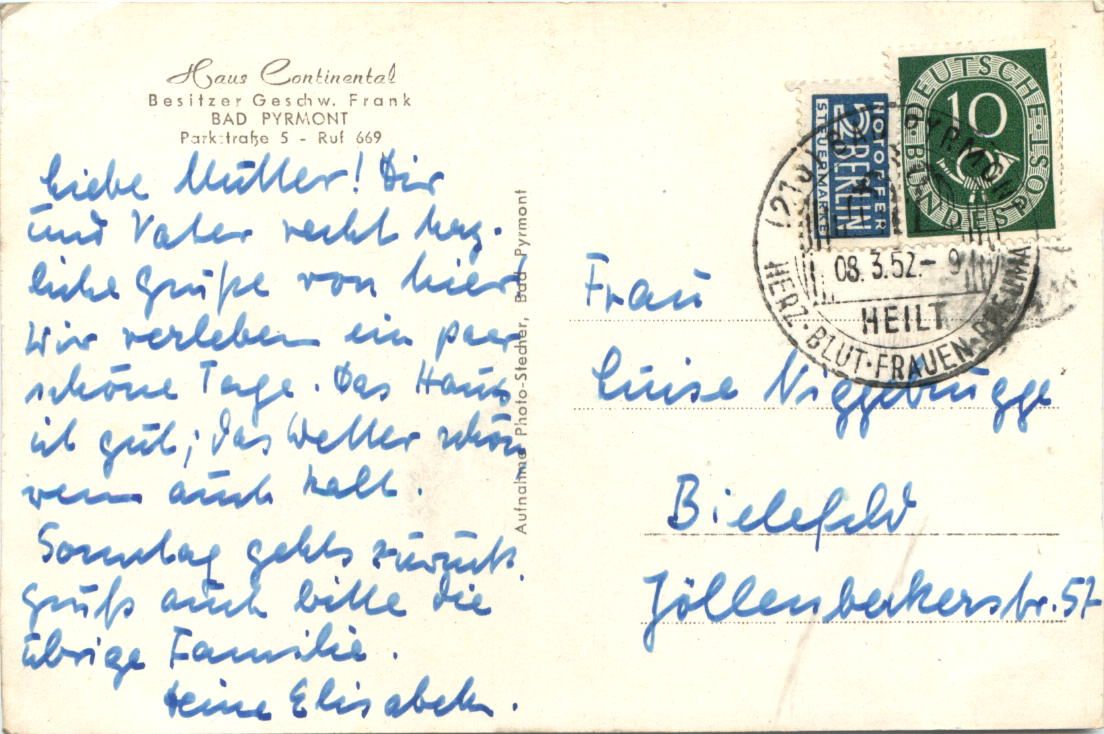 Haus Continental
Besitzer Geschw. Frank
BAD PYRMONT
Parkstraße 5 - Ruf 669
Liebe Mutter! Dir
und Vater recht herz-
liche Grüße von hier!
Wir verleben ein paar
schöne Tage. Das Haus
ist gut, das Wetter schön
wenn auch kalt.
Sonntag gehts zurück.
Grüß auch bitte die
übrige Familie.
Deine Elisabeth.
Aufnahme Photo-Stedher, Bad Pyrmont
NOTOPFER
2 BERLIN
STEUERMARKE
DEUTSCHE BUNDESPOST
10
PYRMONT
08.3.52.- 9
HEILT
HERZ·BLUT·FRAUEN·RHEUMA
Frau
Luise Niggebrügge
Bielefeld
Jöllenbeckerstr. 57